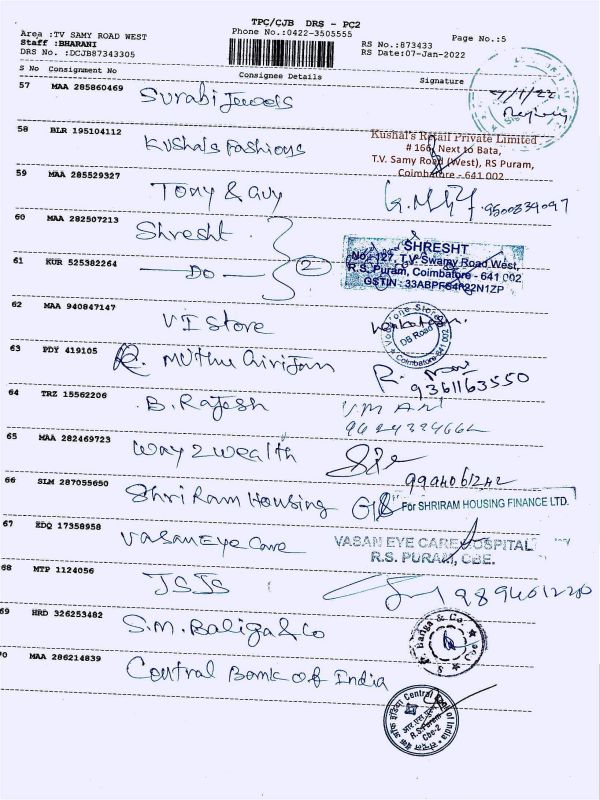 TPC/CJB DRS - PC2
Area :TV SAMY ROAD WEST
Phone No.:0422-3505555
Page No.:5
Staff :BHARANI
RS No.:873433
DRS No. :DCJB87343305
RS Date:07-Jan-2022
S No Consignment No Consignee Details Signature
57 MAA 285860469 Surabi Jewels
58 BLR 195104112 Kushals Fashions
Kushal's Retail Private Limited
# 166, Next to Bata,
T.V. Samy Road (West), RS Puram,
Coimbatore - 641 002
59 MAA 285529327 Tony & Guy 9500839097
60 MAA 282507213 Shresht
61 KUR 525382264 — DO — 2
SHRESHT
No. 127, T.V. Swamy Road West,
R.S. Puram, Coimbatore - 641 002
62 MAA 940847147 VI Store
Vodafone Store
DB Road
Coimbatore-641 002
63 PDY 419105 R. Muthu 9361163550
64 TRZ 15562206 B. Rajesh
65 MAA 282469723 Way 2 Wealth
66 SLM 287055650 Shri Ram Housing For SHRIRAM HOUSING FINANCE LTD.
67 EDQ 17358958 Vasan Eye Care
VASAN EYE CARE HOSPITAL
R.S. PURAM, CBE.
68 MTP 1124056 JSJS
69 HRD 326253482 S.M. Baliga & Co
70 MAA 286214839 Central Bank of India
Central Bank of India
R.S. Puram
Cbe-2